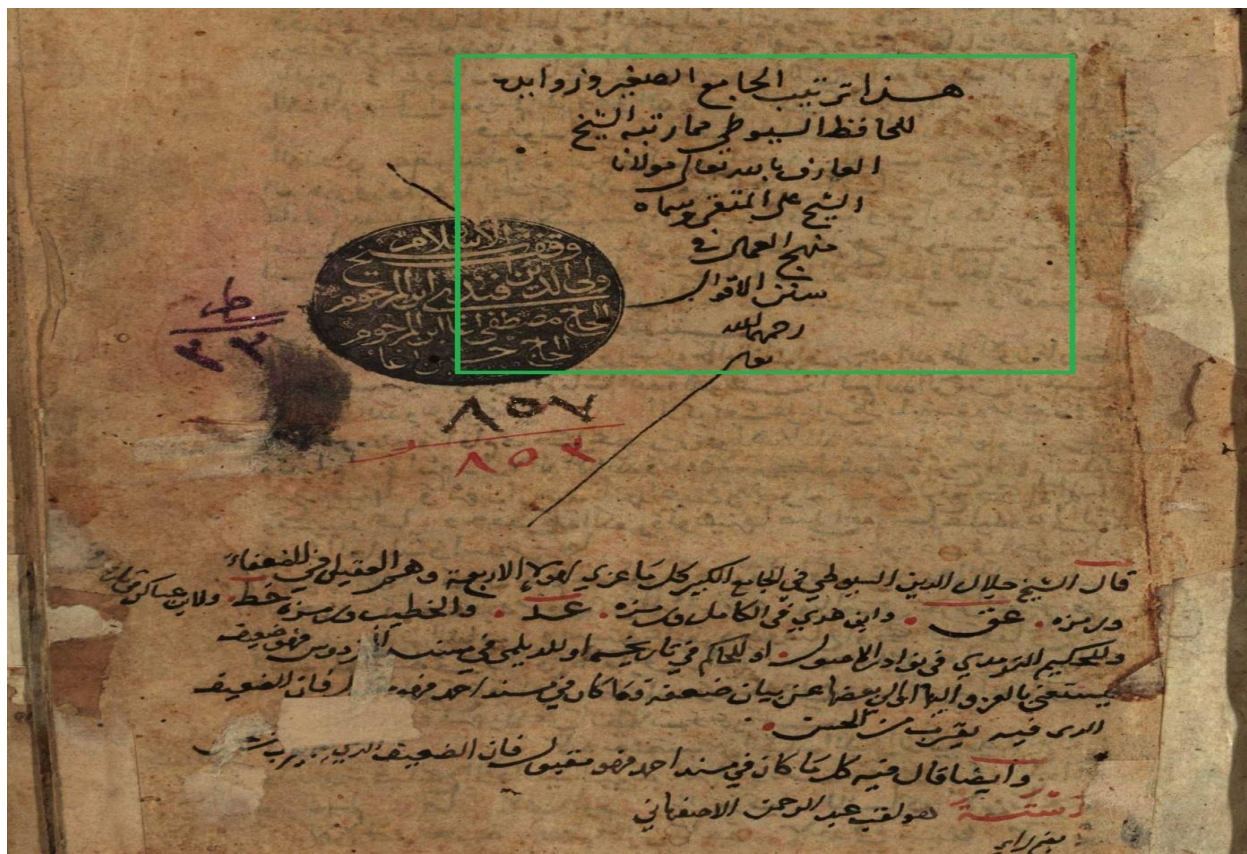 هذا ترتيب الجامع الصغير وزوايده
للحافظ السيوطي مما رتبه الشيخ
العارف بالله تعالى مولانا
الشيخ علي المتقي وسماه
منهج العمال في
سنن الاقوال
رحمه الله
تعالى
وقف شيخ الاسلام
ولي الدين افندي ابن المرحوم
الحاج مصطفى اغا ابن المرحوم
الحاج حسين اغا
ط
٢٢
٨٥٧
٨٥٢
قال الشيخ جلال الدين السيوطي في الجامع الكبير كل ما عزي لهولا الاربعة وهم العقيلي في الضعفاء
ورمزه عق وابن عدي في الكامل ورمزه عد والخطيب ورمزه خط ولابن عساكر
وللحكيم الترمدي في نوادر الاصول او للحاكم في تاريخه او للديلمي في مسند الفردوس فهو ضعيف
يستغنى بالعزو اليها او الى بعضها عن بيان ضعفه وما كان في مسند احمد فهو فان الضعيف
الدى فيه يقرب من الحسن
وايضا قال فيه كل ما كان في مسند احمد فهو مقبول فان الضعيف الدي فيه يقرب من
رسته هو لقب عبد الرحمن الاصفهاني